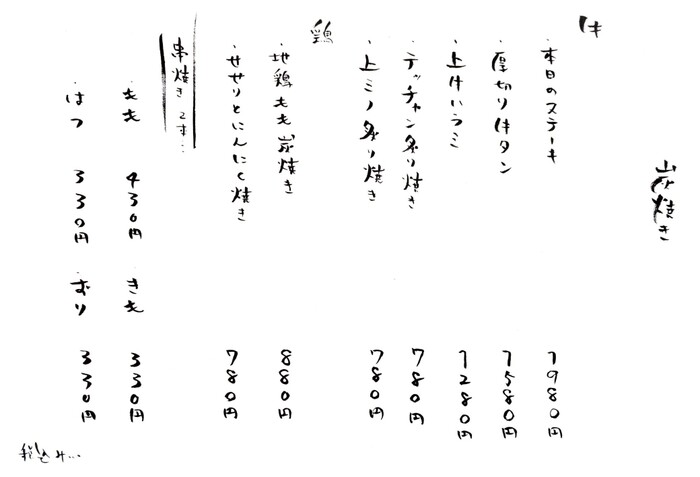 炭焼き
牛
・本日のステーキ 1980円
・厚切り牛タン 1580円
・上サガリ 1280円
・テッチャン炙り焼き 780円
・上ミノ炙り焼き 780円
鶏
・地鶏もも炭焼き 880円
・せせりとにんにく焼き 780円
串焼き 2本..
・もも 430円 ・きも 330円
・はつ 330円 ・ずり 330円
税込み...